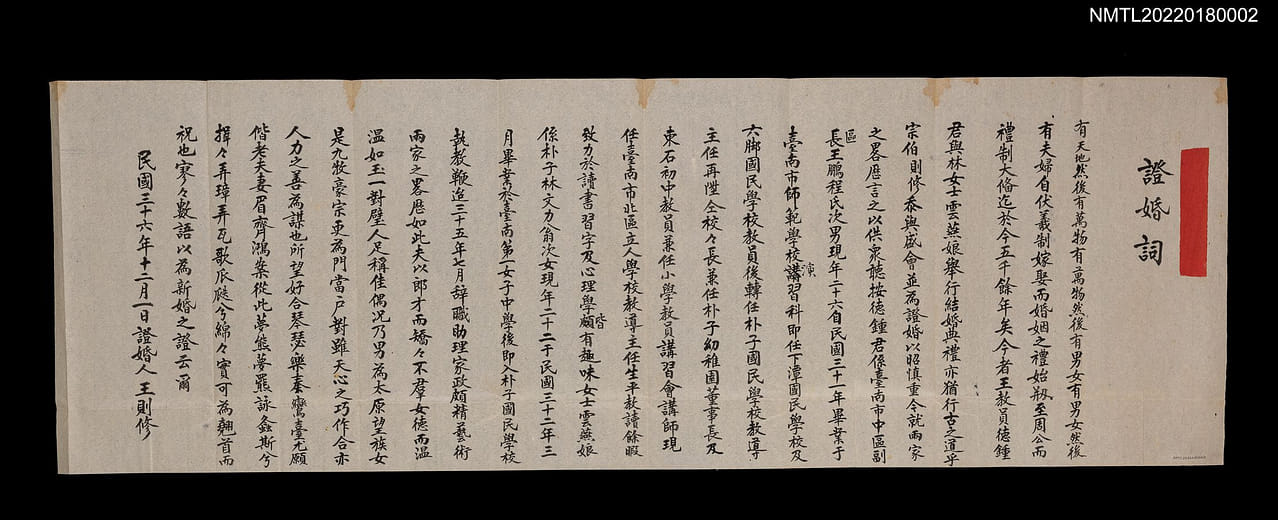 NMTL20220180002
證婚詞
有天地然後有萬物有萬物然後有男女有男女然後
有夫婦自伏羲制嫁娶而婚姻之禮始粉至周公而
禮制大俻迄於今五千餘年矣今者王教員德鍾
君與林女士雲燕娘舉行結婚典禮亦猶行古之道乎
宗伯則修忝與盛會並為證婚以昭慎重今就兩家
之畧歴言之以供衆聽按德鍾君係臺南市中區副
區長王鵬程氏次男現年二十六自民國三十一年畢業于
臺南市師範學校講習科即任下潭國民學校及
演
六脚國民學校教員後轉任朴子國民學校教導
主任再陞仝校々長兼任朴子幼稚園董事長及
東石初中教員兼任小學教員講習會講師現
任臺南市北區立人學校教導主任生平教讀餘暇
致力於讀書習字及心理學頗有趣味女士雲燕娘
皆
係朴子林文力翁次女現年二十二于民國三十二年三
月畢業於臺南第一女子中學後即入朴子國民學校
執教鞭迨三十五年七月辞職助理家政頗精藝術
兩家之畧歴如此夫以郎才而矯々不羣女德而温
温如玉一對璧人足稱佳偶况乃男為太原望族女
是九牧豪宗更為門當户對雖天心之巧作合亦
人力之善為謀也所望好合琴瑟樂奏鸞臺尤願
偕老夫妻眉齊鴻案從此夢熊夢羆詠螽斯兮
揖々弄璋弄瓦歌瓜瓞兮綿々實可為翹首而
祝也寥々數語以為新婚之證云爾
民國三十六年十二月一日證婚人王則修